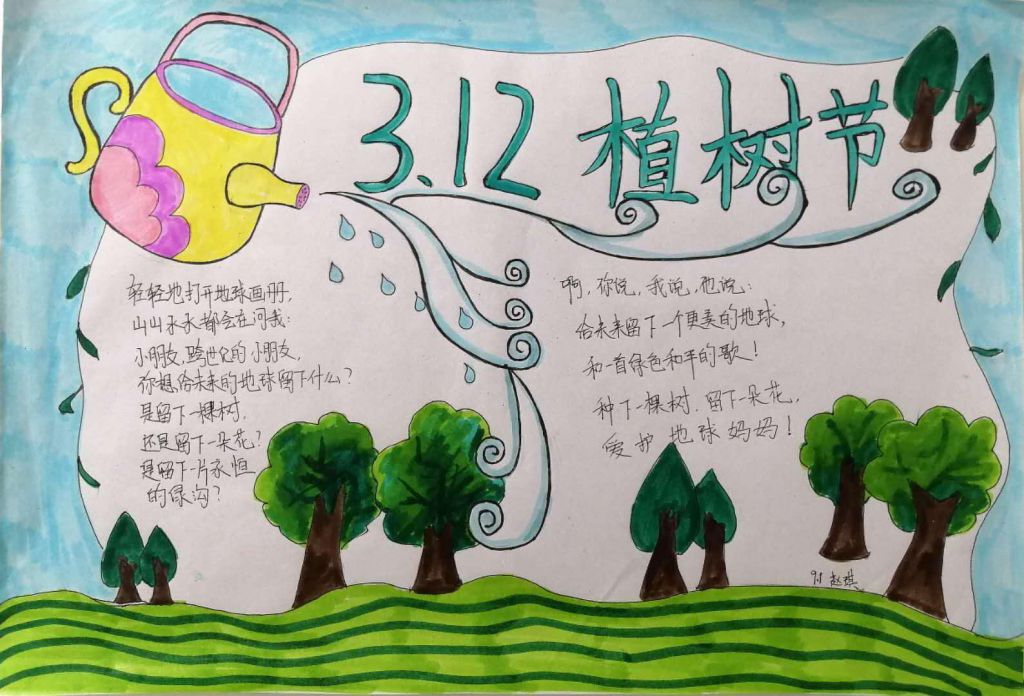 3.12 植树节
轻轻地打开地球画册,
山山水水都会在问我:
小朋友,跨世纪的小朋友,
你想给未来的地球留下什么?
是留下一棵树,
还是留下一朵花?
是留下一片永恒
的绿沟?
啊,你说,我说,他说:
给未来留下一个更美的地球,
和一首绿色和平的歌!
种下一棵树,留下一朵花,
爱护地球妈妈!
9.1 赵琪